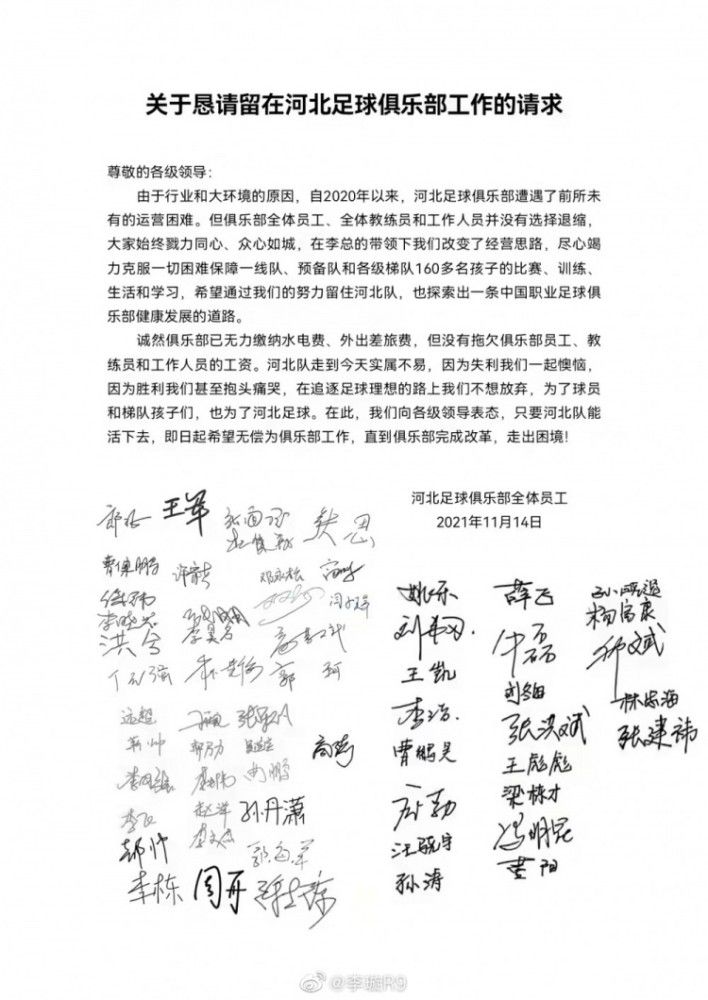 关于恳请留在河北足球俱乐部工作的请求
尊敬的各级领导：
由于行业和大环境的原因，自2020年以来，河北足球俱乐部遭遇了前所未
有的运营困难。但俱乐部全体员工、全体教练员和工作人员并没有选择退缩，
大家始终戮力同心、众心如城，在李总的带领下我们改变了经营思路，尽心竭
力克服一切困难保障一线队、预备队和各级梯队160多名孩子的比赛、训练、
生活和学习，希望通过我们的努力留住河北队，也探索出一条中国职业足球俱
乐部健康发展的道路。
诚然俱乐部已无力缴纳水电费、外出差旅费，但没有拖欠俱乐部员工、教
练员和工作人员的工资。河北队走到今天实属不易，因为失利我们一起懊恼，
因为胜利我们甚至抱头痛哭，在追逐足球理想的路上我们不想放弃，为了球员
和梯队孩子们，也为了河北足球。在此，我们向各级领导表态，只要河北队能
活下去，即日起希望无偿为俱乐部工作，直到俱乐部完成改革，走出困境！
河北足球俱乐部全体员工
2021年11月14日
王军
曹保鹏
洪兮
郭珂
远超
孙丹潇
李栋
周丹
姚乐
薛飞
杨富良
王凯
牛磊
李浩
张洪斌
林志海
张建祎
曹鹏昊
王彪彪
梁栋才
汪晓宇
冯明昆
孙涛
黄阳
@李璇R9